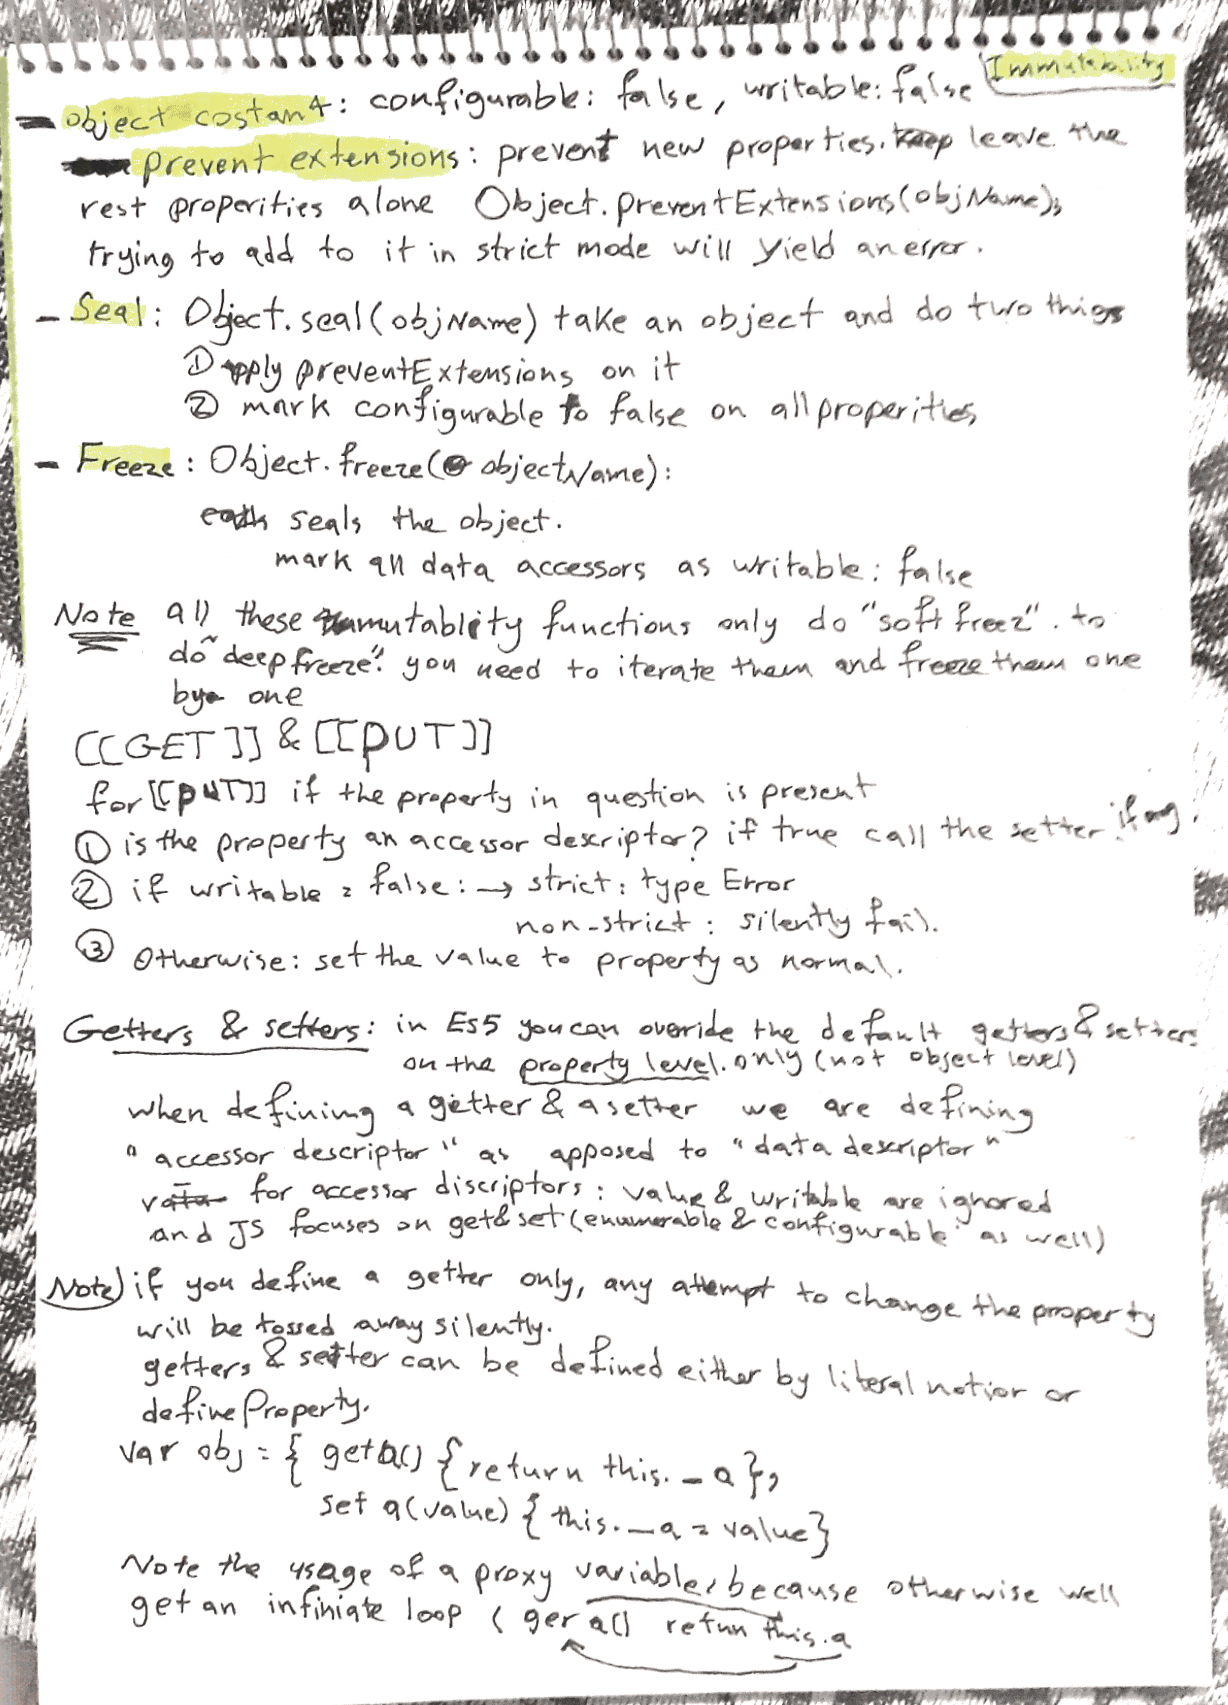 Immutability
- object costant: configurable: false, writable: false
prevent extensions: prevent new properties. keep leave the
rest properities alone Object.preventExtensions(objName);
trying to add to it in strict mode will yield an error.
- Seal: Object.seal(objName) take an object and do two thigs
① apply preventExtensions on it
② mark configurable to false on all properities
- Freeze: Object.freeze(objectName):
seals the object.
mark all data accessors as writable: false
Note all these immutablity functions only do "soft freez". to
do "deep freeze". you need to iterate them and freeze them one
by one
[[GET]] & [[PUT]]
for [[PUT]] if the property in question is present
① is the property an accessor descriptor? if true call the setter if any.
② if writable = false: → strict: type Error
non-strict: silently fail.
③ Otherwise: set the value to property as normal.
Getters & setters: in ES5 you can override the default getters & setters
on the property level. only (not object level)
when defining a getter & a setter we are defining
"accessor descriptor" as apposed to "data descriptor"
for accessor discriptors: value & writable are ignored
and JS focuses on get & set (enumerable & configurable as well)
Note) if you define a getter only, any attempt to change the property
will be tossed away silently.
getters & setter can be defined either by literal notior or
defineProperty.
var obj = { get a() { return this._a },
set a(value) { this._a = value}
Note the usage of a proxy variable, because otherwise well
get an infiniate loop ( ger a() retunn this.a